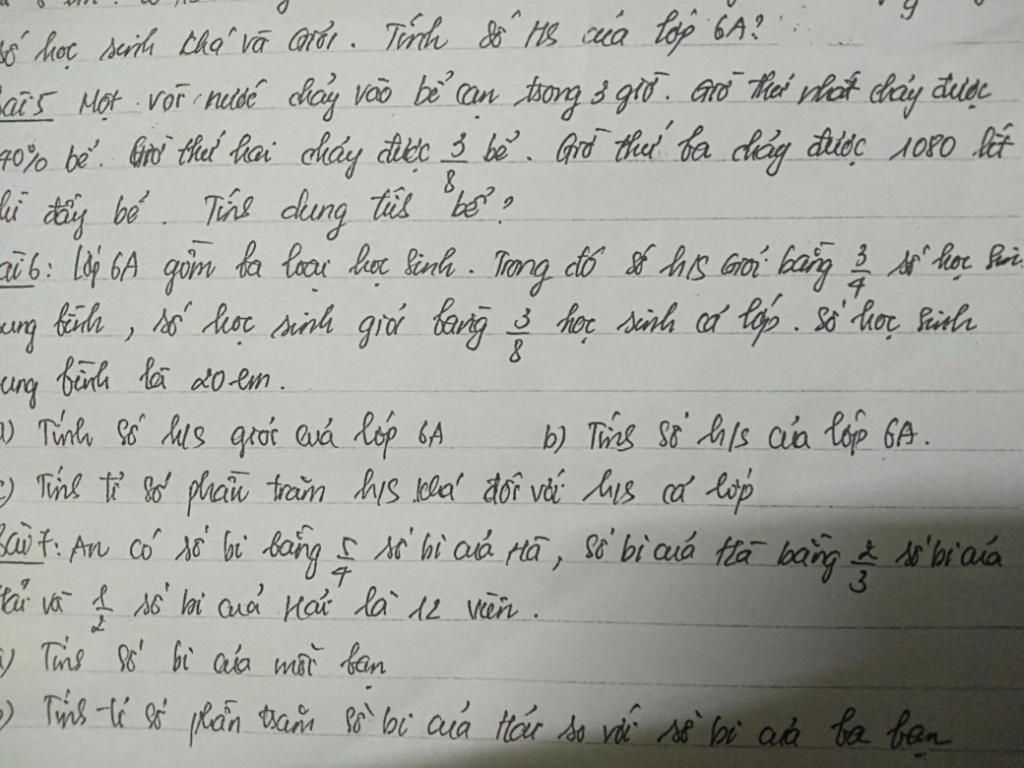 số học sinh khá và Giỏi. Tính số HS của lớp 6A?
ài 5 Một vòi nước chảy vào bể cạn trong 3 giờ. Giờ thứ nhất chảy được
40% bể. Giờ thứ hai chảy được 3/8 bể. Giờ thứ ba chảy được 1080 lít
đầy bể. Tính dung tích bể?
ài 6: Lớp 6A gồm ba loại học sinh. Trong đó số h/s Giỏi bằng 3/4 số học sin
ung bình, số học sinh giỏi bằng 3/8 học sinh cả lớp. Số học sinh
ung bình là 20 em.
a) Tính số h/s giỏi của lớp 6A b) Tính số h/s của lớp 6A.
c) Tính tỉ số phần trăm h/s khá đối với h/s cả lớp
Bài 7: An có số bi bằng 5/4 số bi của Hà, số bi của Hà bằng 2/3 số bi của
Hải và 1/2 số bi của Hải là 12 viên.
a) Tính số bi của mỗi bạn
b) Tính tỉ số phần trăm số bi của Hải so với số bi của ba bạn